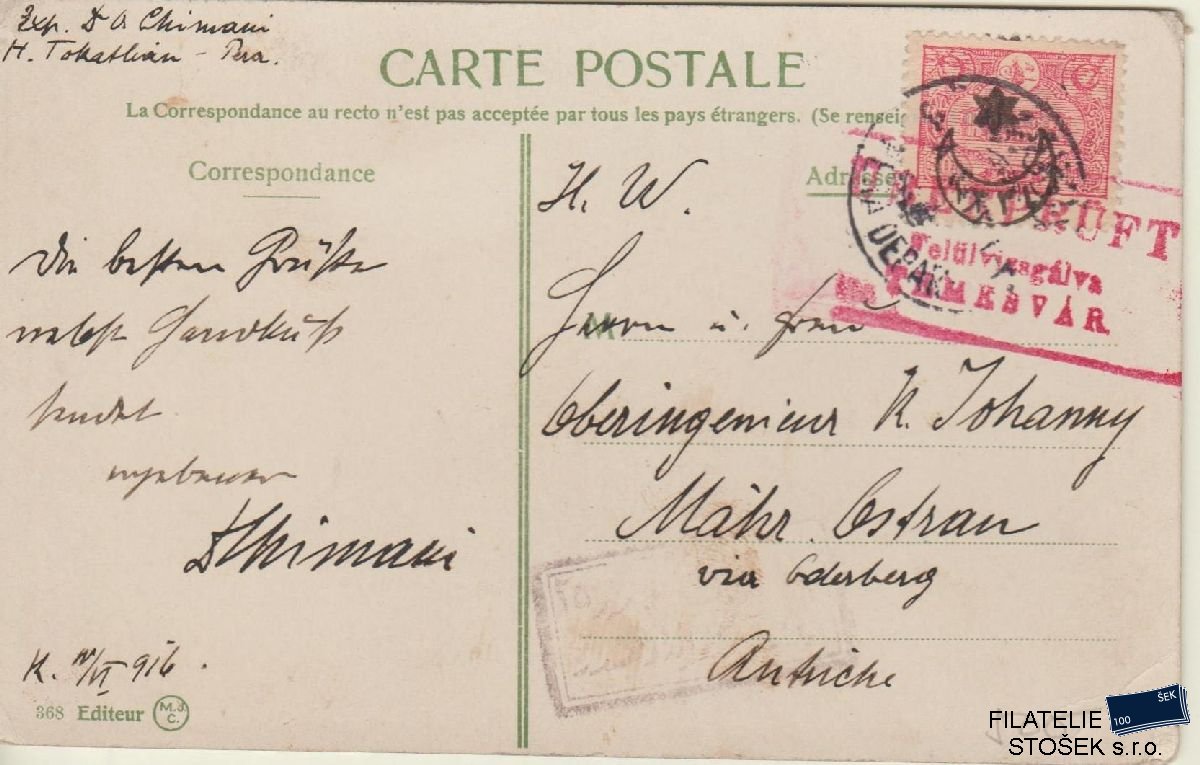 Exp. D A Chimani
H. Tokatlian - Pera.
CARTE POSTALE
La Correspondance au recto n'est pas acceptée par tous les pays étrangers. (Se
Correspondance
Adresse
H. W.
Herrn u. Frau
M
Oberingenieur K. Johanny
Mähr. Ostrau
via Oderberg
Autriche
Die besten Grüße
nebst Handkuß
sendet
ergebener
DChimani
K. VI 916.
368 Editeur M.J.C.
GEPRÜFT
Felülvizsgálva
TEMESVÁR
DEPART
FILATELIE
STOŠEK s.r.o.
100
ŠEK